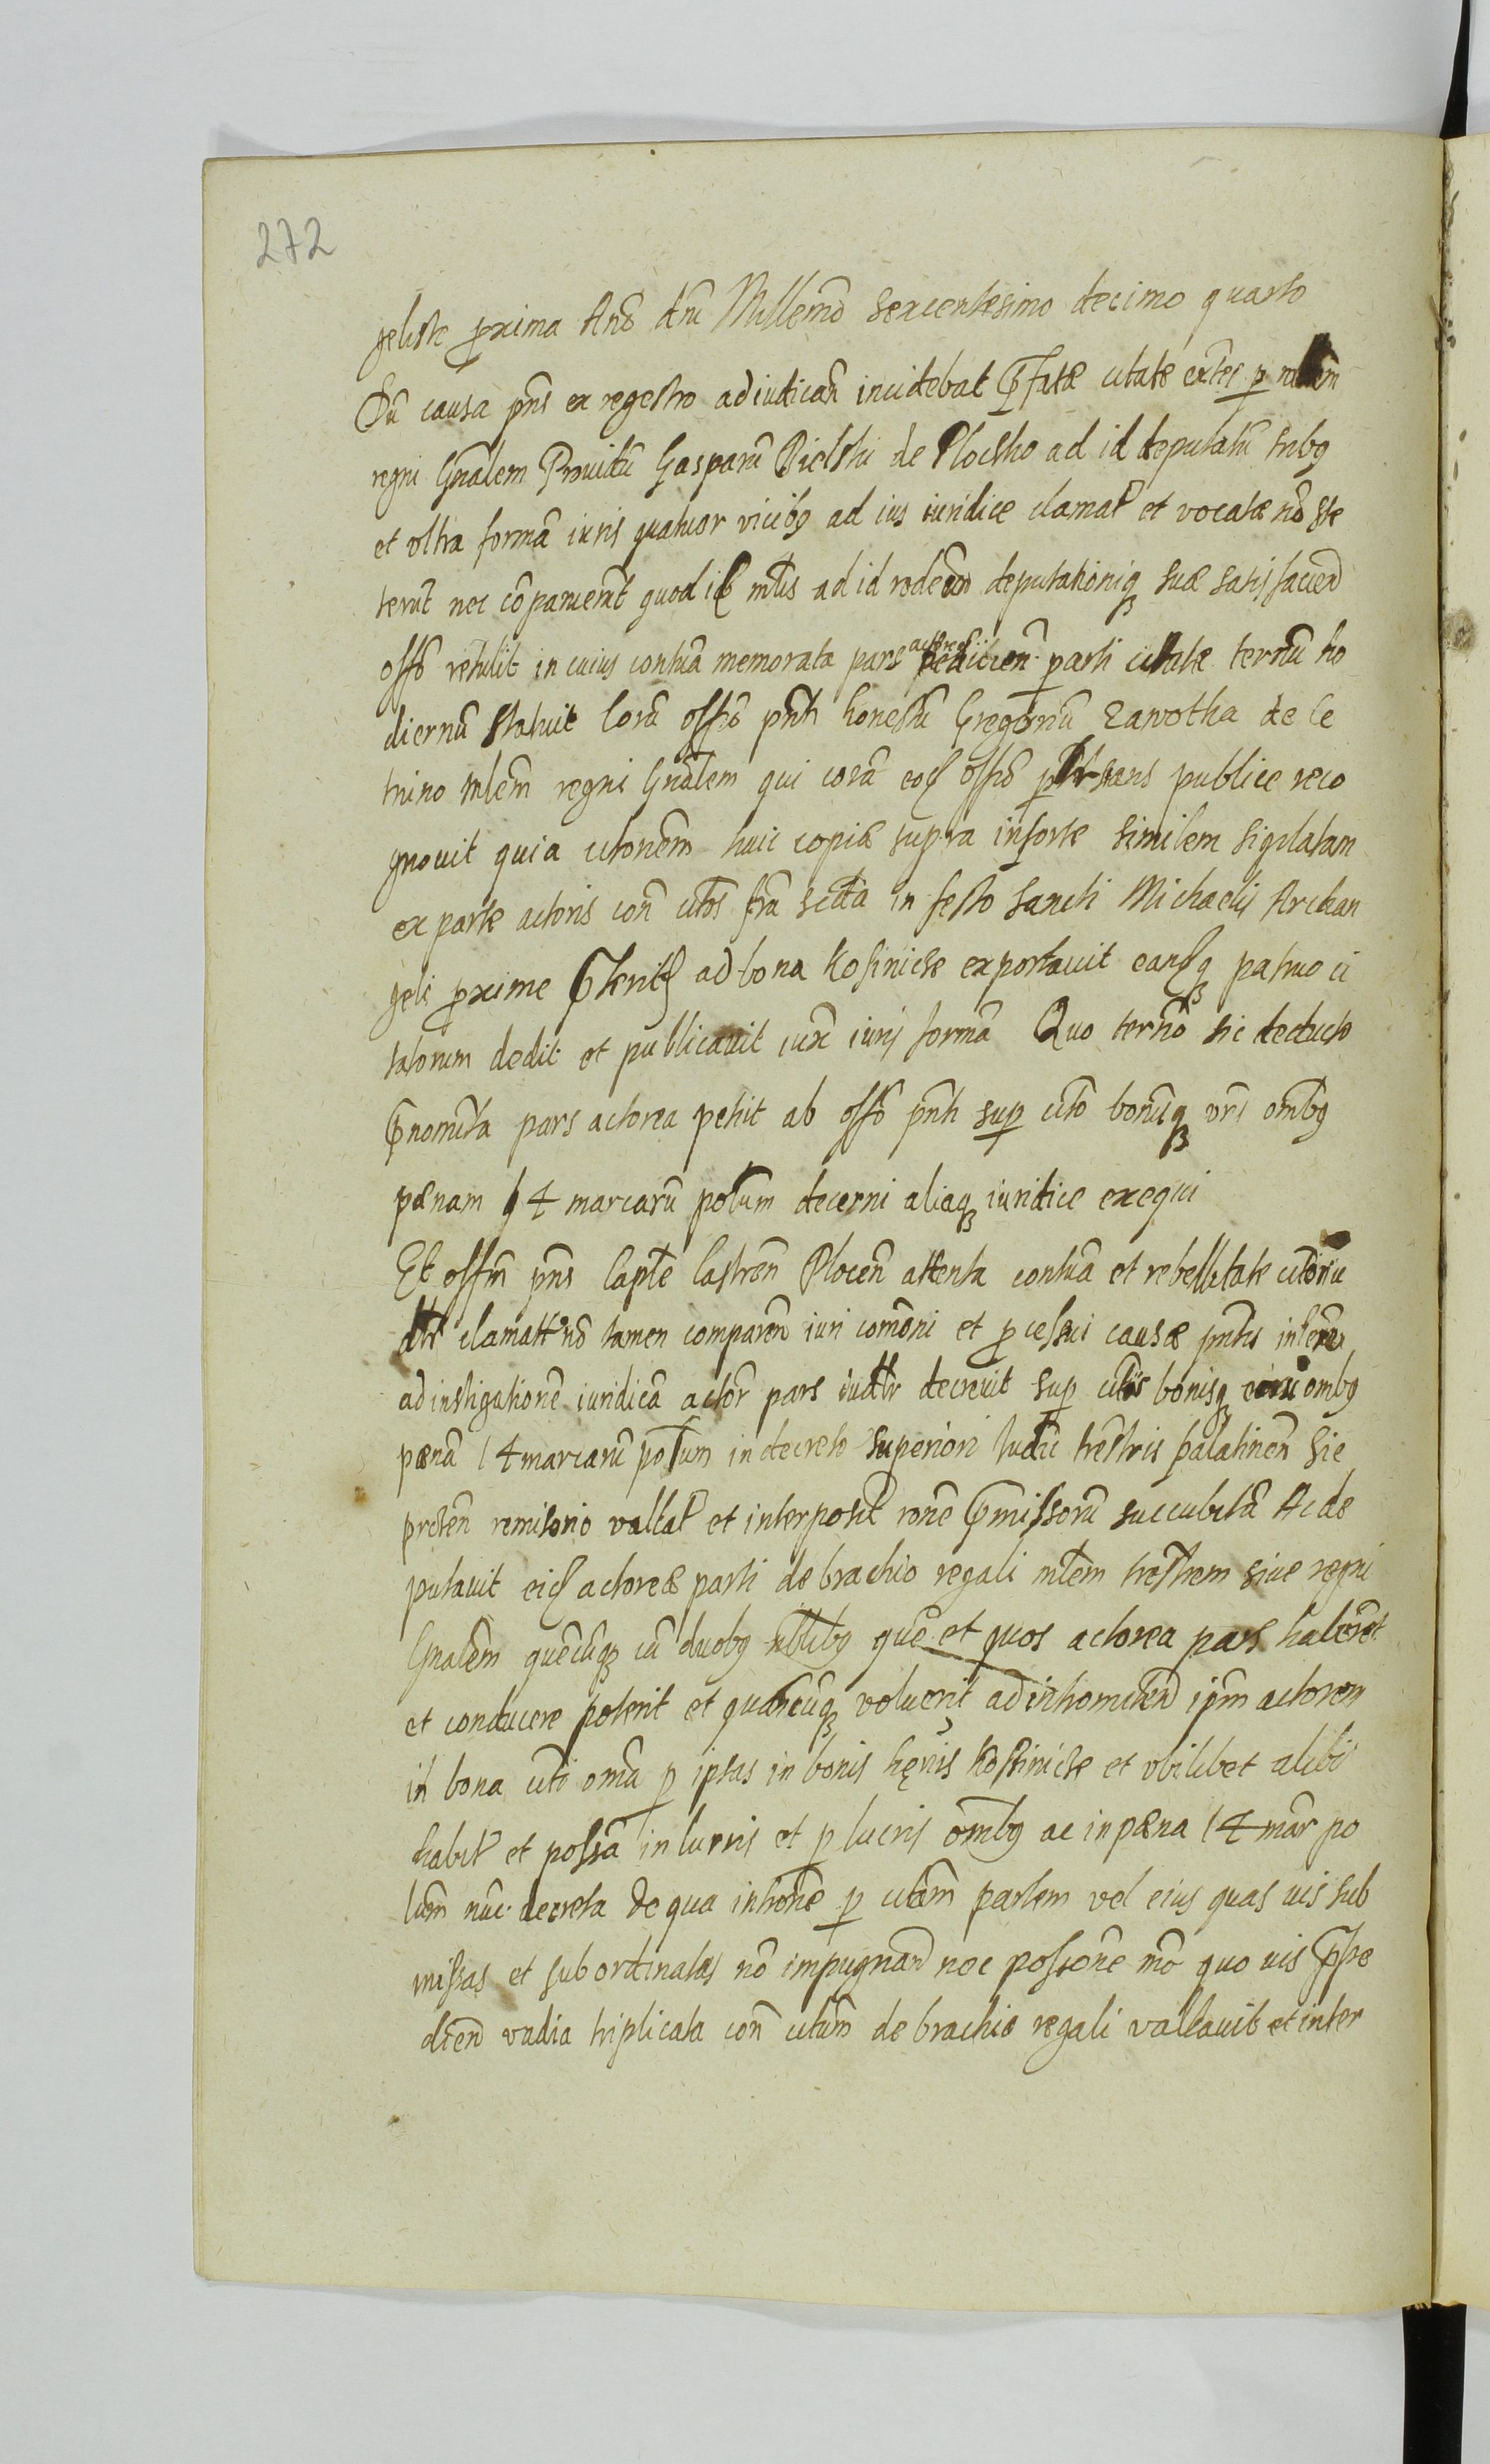 272
geliste proxima Anō dni Millemō sexcentesimo decimo quarto
Dū causa pn̄s ex regestro ad iudican̄ incidebat p̄fatæ citatæ p
regni Gn̄alem Prouidū Gasparū Bielski de Plocsko ad id deputatū tribq
et vltra formā iuris quatuor vicibq ad ius iuridice clamat et vocatæ nō ste
terūt nec cōparuerūt quod mtls ad id deputationiq suæ satisfaciend
offō retulit in cuius contuā memorata pars actorea parti citatæ ternū ho
diernū statuit Corā offō pnti honestū Gregoriū Zawotka de Ce
trino mlem̄ regni Gn̄alem qui corā eod offō publice reco
gnouit quia citonem̄ huic copiæ supra insertæ similem sigilatam
ex parte actoris con citos fra scta in festo Sancti Michaelis Archan
geli proxime p̄terit ad bona Kosinicze exportauit eandq patruo ci
tatorum dedit et publicauit iux iuris formā Quo ternō sic deducto
p̄nomta pars actorea petit ab offō pnti sup cito bonisq ombq
pænam 14 marcarū poltum decerni aliaq iuridice exequi
Et offm pn̄s Capte Castren̄ Plocen̄ attenta contuā et rebellitate citoru
clamatt nō tamen comparen̄ iuri comōni et pcessui causæ pn̄tis
ad instigationē iuridicā actor pars iudtr decreuit sup citis bonisq ombq
pænā 14 marcarū poltum in decreto superiori Iudic trestris palatinen̄ Sie
prcien̄ remisorio vallat et interposit rōne p̄missorū succubitā Ac de
putauit eid actoreæ parti de brachio regali mlem trestrem siue regni
Gn̄alem quēcūq cū duobq nblibq quē et quos actorea pars haberet
et conducere poterit et quancūq voluerit ad intromitten̄ ipm actorem
in bona citi omā p ipsas in bonis Kosinicze et vbilibet alibi
habit et possā in lucris et p lucris ombq ac in pæna 14 mar po
ltum nūc decreta De qua intronē p citam partem vel eius quas uis sub
missas et subordinatas nō impugnan̄ nec possionē mō quo uis p̄pe
dien̄ vadia triplicata con citum de brachio regali vallauit et inter